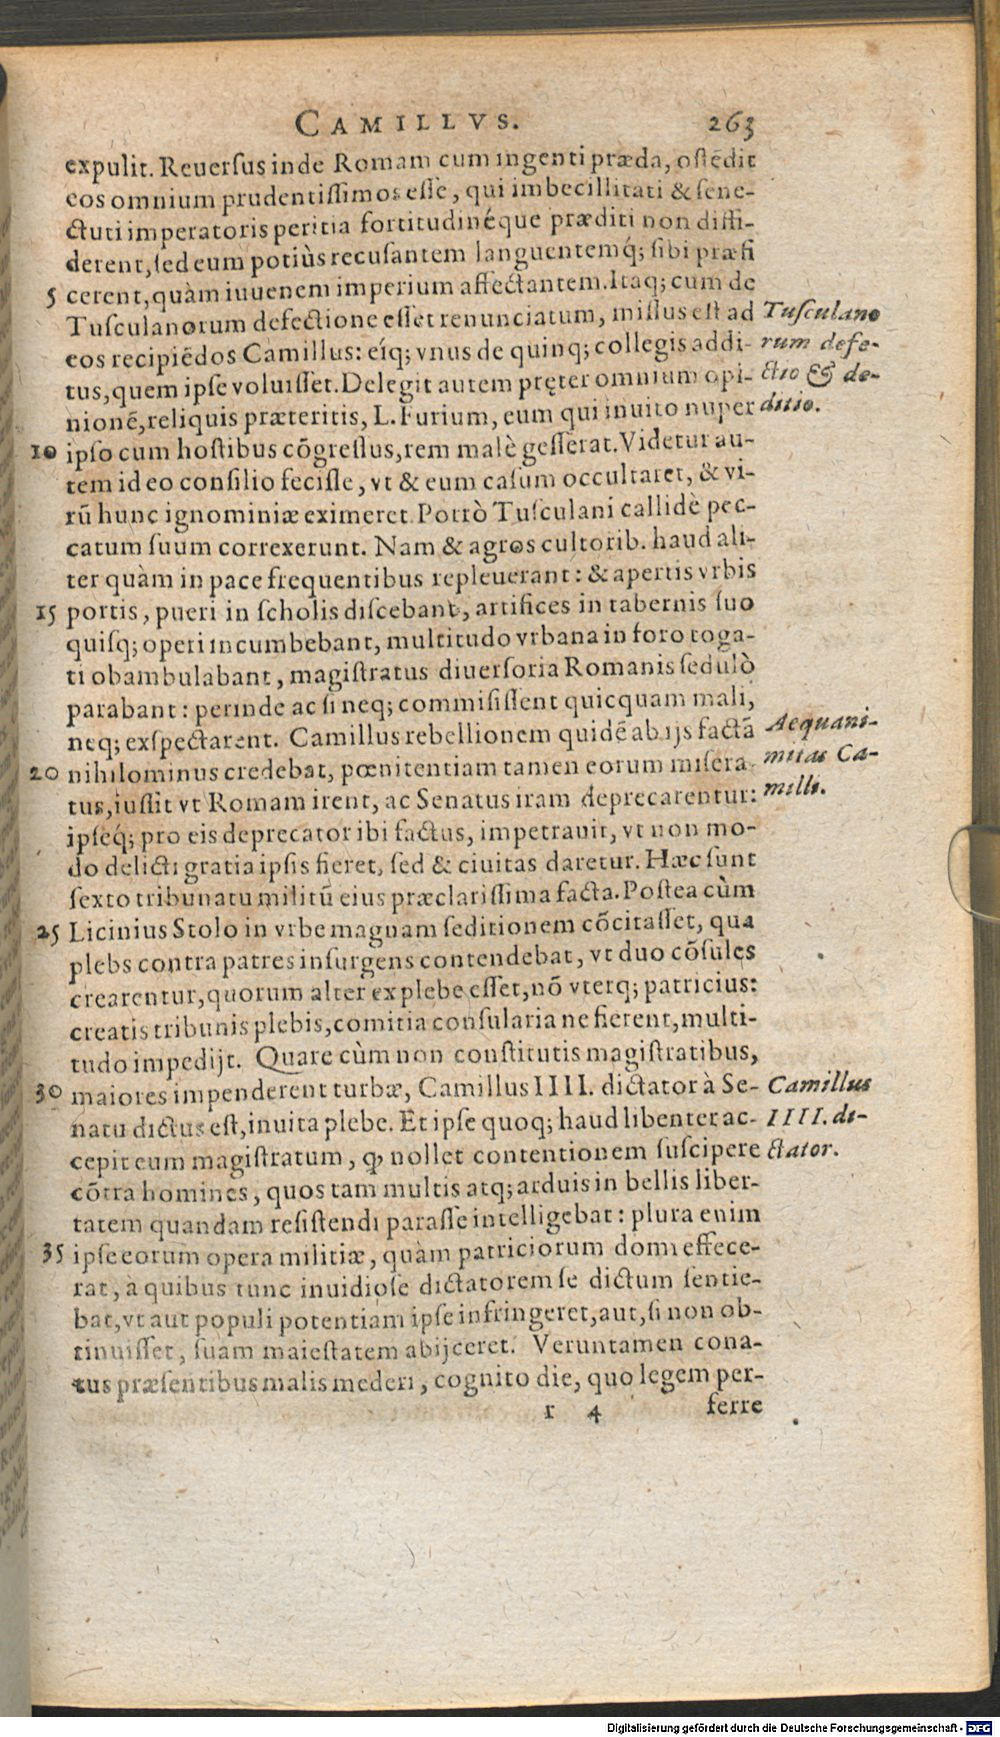 CAMILLVS. 263
expulit. Reuersus inde Romam cum ingenti præda, ostẽdit
eos omnium prudentissimos esse, qui imbecillitati & sene-
ctuti imperatoris peritia fortitudinéque præditi non diffi-
derent, sed eum potiùs recusantem languentemq́; sibi præfi
5 cerent, quàm iuuenem imperium affectantem. Itaq; cum de
Tusculanorum defectione esset renunciatum, missus est ad
eos recipiẽdos Camillus: eíq; vnus de quinq; collegis addi-
tus, quem ipse voluisset. Delegit autem pręter omnium opi-
nionẽ, reliquis præteritis, L. Furium, eum qui inuito nuper
10 ipso cum hostibus cõgressus, rem malè gesserat. Videtur au-
tem id eo consilio fecisse, vt & eum casum occultaret, & vi-
rũ hunc ignominiæ eximeret. Porrò Tusculani callidè pec-
catum suum correxerunt. Nam & agros cultorib. haud ali-
ter quàm in pace frequentibus repleuerant: & apertis vrbis
15 portis, pueri in scholis discebant, artifices in tabernis suo
quisq; operi incumbebant, multitudo vrbana in foro toga-
ti obambulabant, magistratus diuersoria Romanis sedulò
parabant: perinde ac si neq; commisissent quicquam mali,
neq; exspectarent. Camillus rebellionem quidẽ ab ijs factã
20 nihilominus credebat, pœnitentiam tamen eorum misera-
tus, iussit vt Romam irent, ac Senatus iram deprecarentur:
ipseq́; pro eis deprecator ibi factus, impetrauit, vt non mo-
do delicti gratia ipsis fieret, sed & ciuitas daretur. Hæc sunt
sexto tribunatu militũ eius præclarissima facta. Postea cùm
25 Licinius Stolo in vrbe magnam seditionem cõcitasset, qua
plebs contra patres insurgens contendebat, vt duo cõsules
crearentur, quorum alter ex plebe esset, nõ vterq; patricius:
creatis tribunis plebis, comitia consularia ne fierent, multi-
tudo impedijt. Quare cùm non constitutis magistratibus,
30 maiores impenderent turbæ, Camillus IIII. dictator à Se-
natu dictus est, inuita plebe. Et ipse quoq; haud libenter ac-
cepit eum magistratum, ꝙ nollet contentionem suscipere
cõtra homines, quos tam multis atq; arduis in bellis liber-
tatem quandam resistendi parasse intelligebat: plura enim
35 ipse eorum opera militiæ, quàm patriciorum domi effece-
rat, à quibus tunc inuidiose dictatorem se dictum sentie-
bat, vt aut populi potentiam ipse infringeret, aut, si non ob-
tinuisset, suam maiestatem abijceret. Veruntamen cona-
tus præsentibus malis mederi, cognito die, quo legem per-
r 4 ferre
Tusculano
rum defe-
ctio & de-
ditio.
Aequani-
mitas Ca-
milli.
Camillus
IIII. di-
ctator.
Digitalisierung gefördert durch die Deutsche Forschungsgemeinschaft - DFG